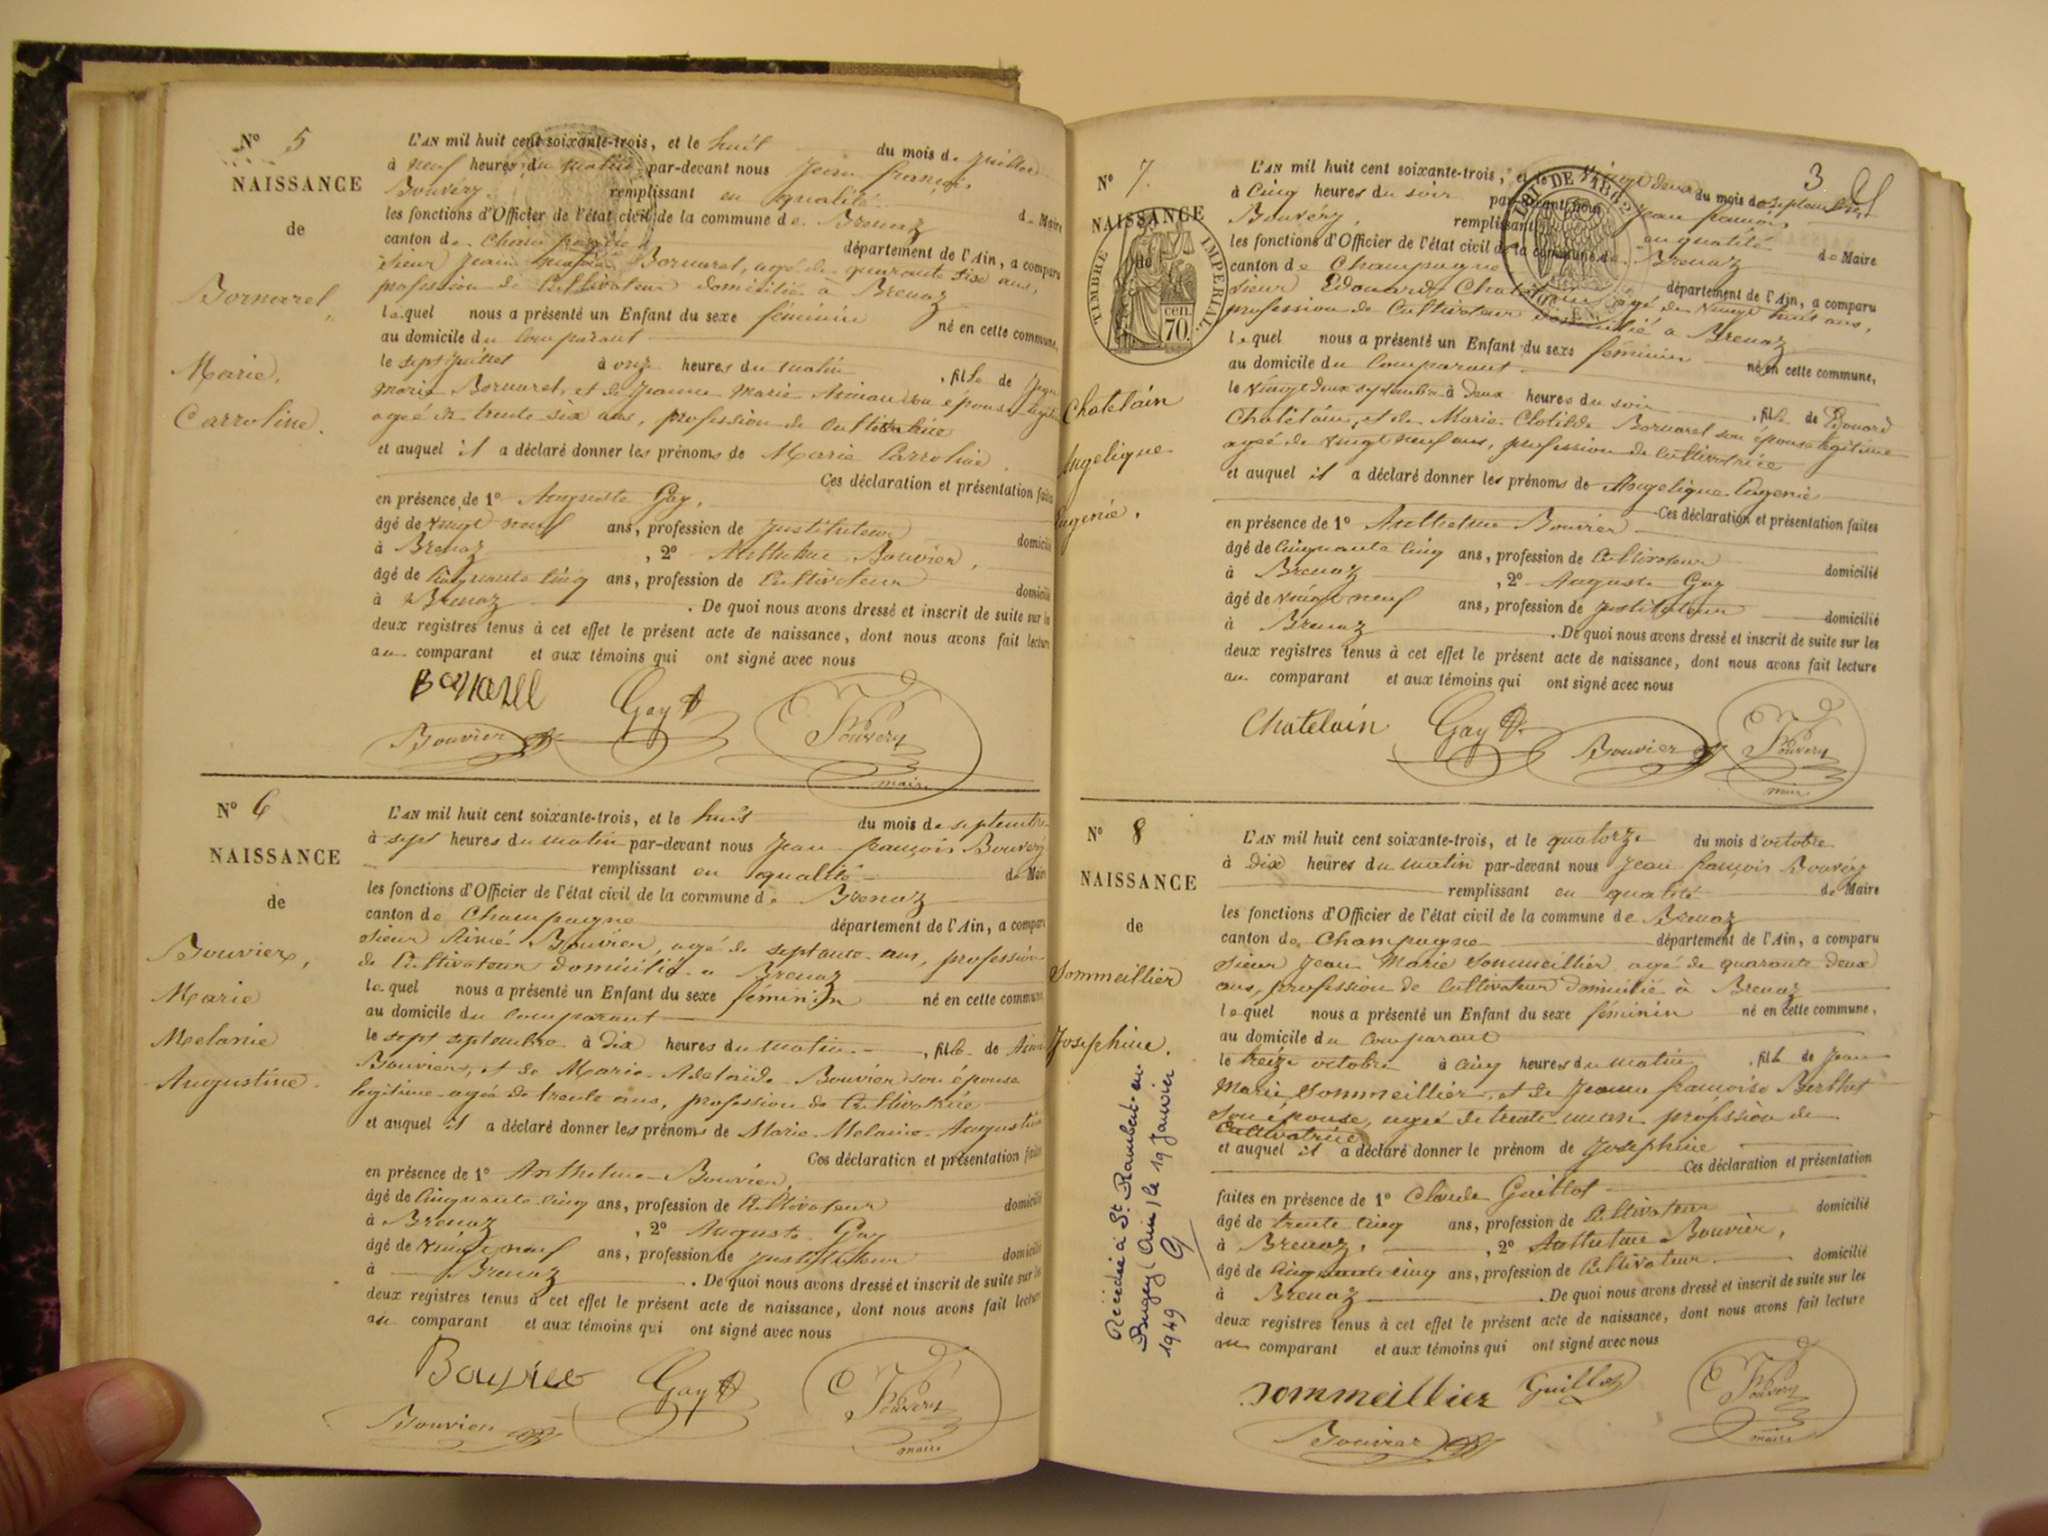 N° 5
NAISSANCE
de
Bornarel,
Marie,
Carroline.
L'AN mil huit cent soixante-trois, et le huit du mois de juillet
à neuf heures du matin par-devant nous Jean françois
Bouvery. remplissant en qualité de Maire
les fonctions d'Officier de l'état civil de la commune de Brenaz
canton de Champagne département de l'Ain, a comparu
sieur Jean Bornarel, agé de quarante six ans,
profession de Cultivateur domicilié à Brenaz
lequel nous a présenté un Enfant du sexe féminin né en cette commune,
au domicile du Comparant
le sept juillet à onze heures du matin, fille de Jean
Marie Bornarel, et de Jeanne Marie son épouse
agée de trente six ans, profession de Cultivatrice
et auquel il a déclaré donner les prénoms de Marie Carroline.
Ces déclaration et présentation faites
en présence de 1° Auguste Gay,
âgé de vingt neuf ans, profession de Instituteur domicilié
à Brenaz, 2° Anthelme Bouvier,
âgé de Cinquante Cinq ans, profession de Cultivateur domicilié
à Brenaz. De quoi nous avons dressé et inscrit de suite sur les
deux registres tenus à cet effet le présent acte de naissance, dont nous avons fait lecture
au comparant et aux témoins qui ont signé avec nous
Gay
Bouvier Bouvery
maire
N° 6
NAISSANCE
de
Bouvier,
Marie
Melanie
Augustine.
L'AN mil huit cent soixante-trois, et le huit du mois de septembre
à sept heures du matin par-devant nous Jean françois Bouvery
remplissant en qualité de Maire
les fonctions d'Officier de l'état civil de la commune de Brenaz
canton de Champagne département de l'Ain, a comparu
sieur Aimé Bouvier, agé de septante ans, profession
de Cultivateur domicilié a Brenaz
lequel nous a présenté un Enfant du sexe féminin né en cette commune
au domicile du Comparant
le sept septembre à dix heures du matin, fille de Aimé
Bouvier, et de Marie Adelaïde Bouvier son épouse
legitime agée de trente ans, profession de Cultivatrice
et auquel il a déclaré donner les prénoms de Marie Melanie Augustine
Ces déclaration et présentation faites
en présence de 1° Anthelme Bouvier,
âgé de Cinquante cinq ans, profession de Cultivateur domicilié
à Brenaz, 2° Auguste Gay
âgé de vingt neuf ans, profession de Instituteur domicilié
à Brenaz. De quoi nous avons dressé et inscrit de suite sur les
deux registres tenus à cet effet le présent acte de naissance, dont nous avons fait lecture
au comparant et aux témoins qui ont signé avec nous
Bouvier Gay Bouvery
Bouvier maire
3
N° 7.
NAISSANCE
de
TIMBRE IMPÉRIAL
CEN. 70.
LOI DE 1862
Chatelain
Angelique
Eugenie.
L'AN mil huit cent soixante-trois, et le vingt deux du mois de septembre
à Cinq heures du soir par-devant nous Jean françois
Bouvéry, remplissant en qualité de Maire
les fonctions d'Officier de l'état civil de la commune de Brenaz
canton de Champagne département de l'Ain, a comparu
sieur Edouard Chatelain agé de vingt huit ans,
profession de Cultivateur domicilié a Brenaz
lequel nous a présenté un Enfant du sexe féminin né en cette commune,
au domicile du Comparant
le vingt deux septembre à deux heures du soir, fille de Edouard
Chatelain, et de Marie Clotilde Bornarel son épouse legitime
agée de vingt neuf ans, profession de Cultivatrice
et auquel il a déclaré donner les prénoms de Angelique Eugenie
Ces déclaration et présentation faites
en présence de 1° Anthelme Bouvier
âgé de Cinquante Cinq ans, profession de Cultivateur domicilié
à Brenaz, 2° Auguste Gay
âgé de vingt neuf ans, profession de Instituteur domicilié
à Brenaz. De quoi nous avons dressé et inscrit de suite sur les
deux registres tenus à cet effet le présent acte de naissance, dont nous avons fait lecture
au comparant et aux témoins qui ont signé avec nous
Chatelain Gay Bouvier Bouvery
maire
N° 8
NAISSANCE
de
Sommeillier
Josephine.
Décédée à St Rambert-en-
Bugey (Ain) le 19 Janvier
1949
L'AN mil huit cent soixante-trois, et le quatorze du mois d'octobre
à Dix heures du matin par-devant nous Jean françois Bouvéry
remplissant en qualité de Maire
les fonctions d'Officier de l'état civil de la commune de Brenaz
canton de Champagne département de l'Ain, a comparu
sieur Jean Marie Sommeillier agé de quarante deux
ans, profession de Cultivateur domicilié à Brenaz
lequel nous a présenté un Enfant du sexe féminin né en cette commune,
au domicile du Comparant
le treize octobre à cinq heures du matin, fille de Jean
Marie Sommeillier, et de Jeanne françoise Berthet
son épouse, agée de trente un an profession de
Cultivatrice
et auquel il a déclaré donner le prénom de Josephine
Ces déclaration et présentation
faites en présence de 1° Claude Guillot
âgé de trente cinq ans, profession de Cultivateur domicilié
à Brenaz, 2° Anthelme Bouvier,
âgé de Cinquante cinq ans, profession de Cultivateur domicilié
à Brenaz. De quoi nous avons dressé et inscrit de suite sur les
deux registres tenus à cet effet le présent acte de naissance, dont nous avons fait lecture
au comparant et aux témoins qui ont signé avec nous
Sommeillier Guillot Bouvery
Bouvier maire